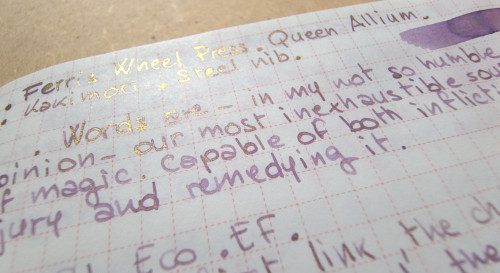 • Ferris Wheel Press. Queen Allium.
• Kakimori • Steel nib.
. Words are - in my not so humble
opinion - our most inexhaustible
of magic. Capable of both
and remedying it.
Eco . EF .
link, the
the